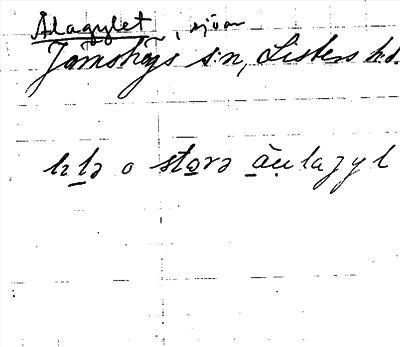 Ålagylet, sjöar
Jämshögs sn, Listers hd.
lılə o stora åu̯lagyl